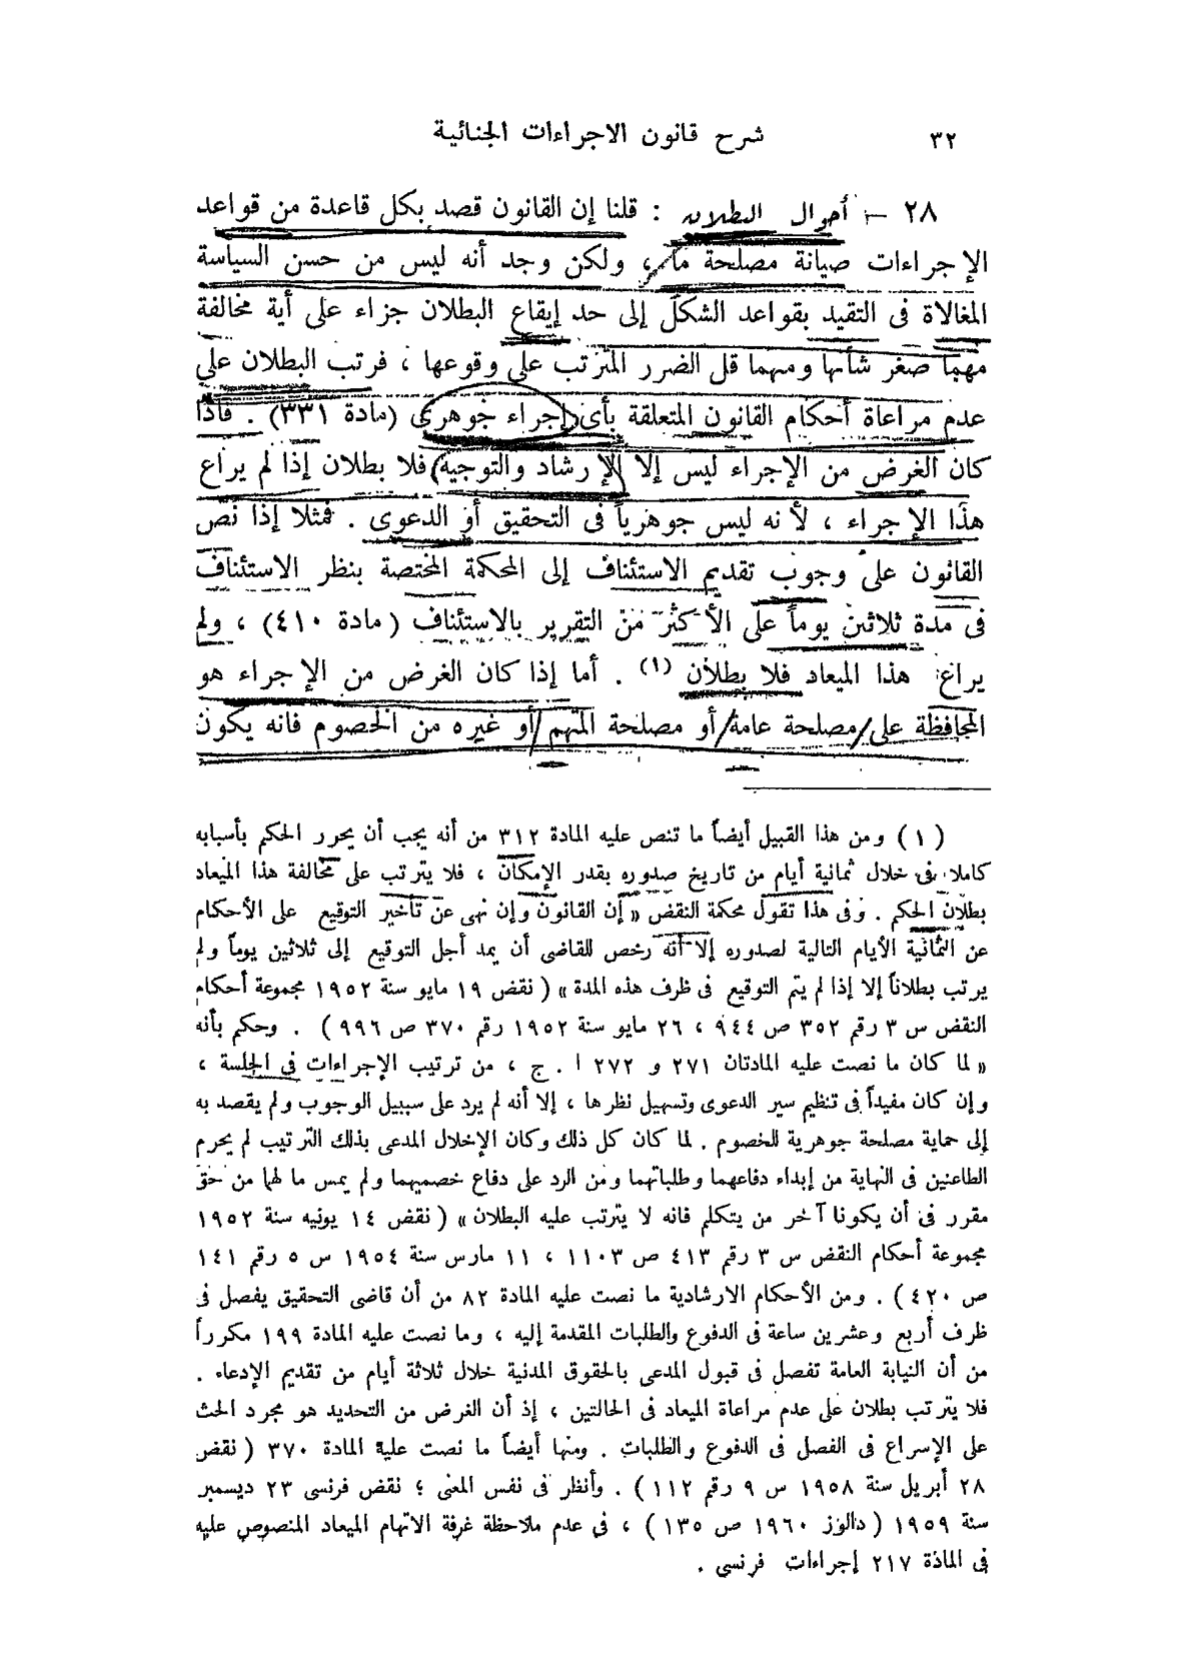 ٣٢
شرح قانون الاجراءات الجنائية
٢٨ — أحوال البطلان : قلنا إن القانون قصد بكل قاعدة من قواعد
الإجراءات صيانة مصلحة ما ، ولكن وجد أنه ليس من حسن السياسة
المغالاة فى التقيد بقواعد الشكل إلى حد إيقاع البطلان جزاء على أية مخالفة
مهما صغر شأنها ومهما قل الضرر المترتب على وقوعها ، فرتب البطلان على
عدم مراعاة أحكام القانون المتعلقة بأى إجراء جوهرى (مادة ٣٣١) . فاذا
كان الغرض من الإجراء ليس إلا الإرشاد والتوجيه فلا بطلان إذا لم يراع
هذا الإجراء ، لأنه ليس جوهرياً فى التحقيق أو الدعوى . فمثلا إذا نص
القانون على وجوب تقديم الاستئناف إلى المحكمة المختصة بنظر الاستئناف
فى مدة ثلاثين يوماً على الأكثر من التقرير بالاستئناف ( مادة ٤١٠) ، ولم
يراع هذا الميعاد فلا بطلان (١) . أما إذا كان الغرض من الإجراء هو
المحافظة على مصلحة عامة أو مصلحة المتهم أو غيره من الخصوم فانه يكون
( ١ ) ومن هذا القبيل أيضاً ما تنص عليه المادة ٣١٢ من أنه يجب أن يحرر الحكم بأسبابه
كاملا فى خلال ثمانية أيام من تاريخ صدوره بقدر الإمكان ، فلا يترتب على مخالفة هذا الميعاد
بطلان الحكم . وفى هذا تقول محكمة النقض « إن القانون وإن نهى عن تأخير التوقيع على الأحكام
عن الثمانية الأيام التالية لصدوره إلا أنه رخص للقاضى أن يمد أجل التوقيع إلى ثلاثين يوماً ولم
يرتب بطلاناً إلا إذا لم يتم التوقيع فى ظرف هذه المدة » ( نقض ١٩ مايو سنة ١٩٥٢ مجموعة أحكام
النقض س ٣ رقم ٣٥٢ ص ٩٤٤ ، ٢٦ مايو سنة ١٩٥٢ رقم ٣٧٠ ص ٩٩٦ ) . وحكم بأنه
« لما كان ما نصت عليه المادتان ٢٧١ و ٢٧٢ ا . ج ، من ترتيب الإجراءات فى الجلسة ،
وإن كان مفيداً فى تنظيم سير الدعوى وتسهيل نظرها ، إلا أنه لم يرد على سبيل الوجوب ولم يقصد به
إلى حماية مصلحة جوهرية للخصوم . لما كان كل ذلك وكان الإخلال المدعى بذلك الترتيب لم يحرم
الطاعنين فى النهاية من إبداء دفاعهما وطلباتهما ومن الرد على دفاع خصميهما ولم يمس ما لهما من حق
مقرر فى أن يكونا آخر من يتكلم فانه لا يترتب عليه البطلان » ( نقض ١٤ يونيه سنة ١٩٥٢
مجموعة أحكام النقض س ٣ رقم ٤١٣ ص ١١٠٣ ، ١١ مارس سنة ١٩٥٤ س ٥ رقم ١٤١
ص ٤٢٠ ) . ومن الأحكام الارشادية ما نصت عليه المادة ٨٢ من أن قاضى التحقيق يفصل فى
ظرف أربع وعشرين ساعة فى الدفوع والطلبات المقدمة إليه ، وما نصت عليه المادة ١٩٩ مكرراً
من أن النيابة العامة تفصل فى قبول المدعى بالحقوق المدنية خلال ثلاثة أيام من تقديم الإدعاء .
فلا يترتب بطلان على عدم مراعاة الميعاد فى الحالتين ، إذ أن الغرض من التحديد هو مجرد الحث
على الإسراع فى الفصل فى الدفوع والطلبات . ومنها أيضاً ما نصت علية المادة ٣٧٠ ( نقض
٢٨ أبريل سنة ١٩٥٨ س ٩ رقم ١١٢ ) . وأنظر فى نفس المعنى ؛ نقض فرنسى ٢٣ ديسمبر
سنة ١٩٥٩ ( دالوز ١٩٦٠ ص ١٣٥ ) ، فى عدم ملاحظة غرفة الاتهام الميعاد المنصوص عليه
فى المادة ٢١٧ إجراءات فرنسى .